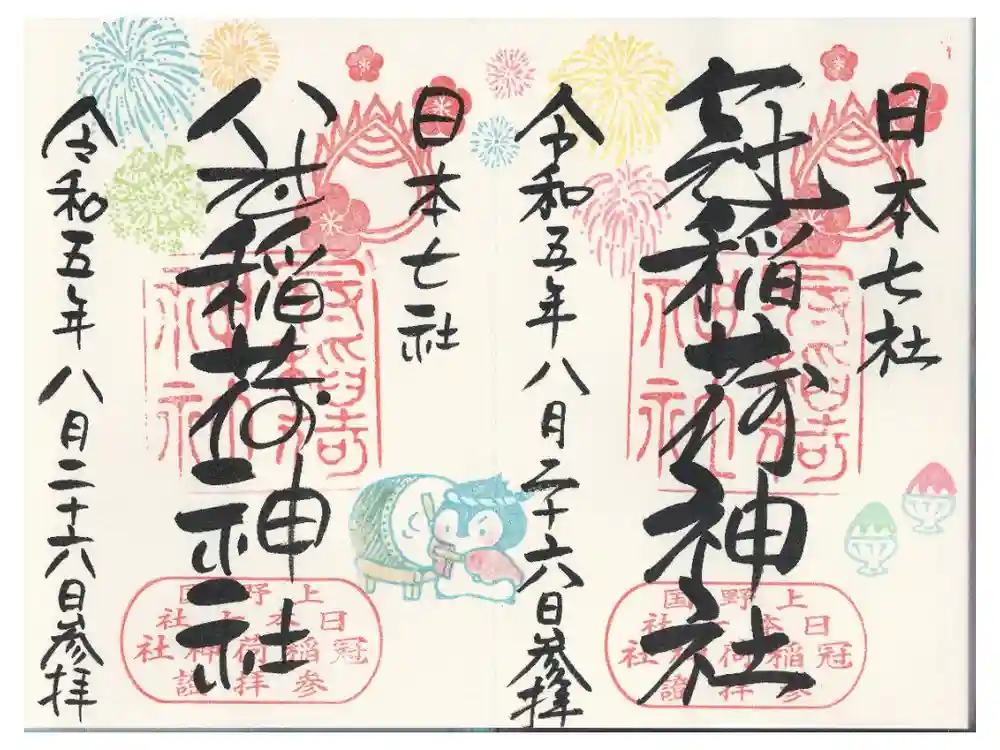 日本七社
冠稲荷神社
令和五年八月二十六日参拝
冠稲荷神社
上野国
日本七社
冠稲荷神社
參拝證
日本七社
冠稲荷神社
令和五年八月二十六日参拝
冠稲荷神社
上野国
日本七社
冠稲荷神社
參拝證